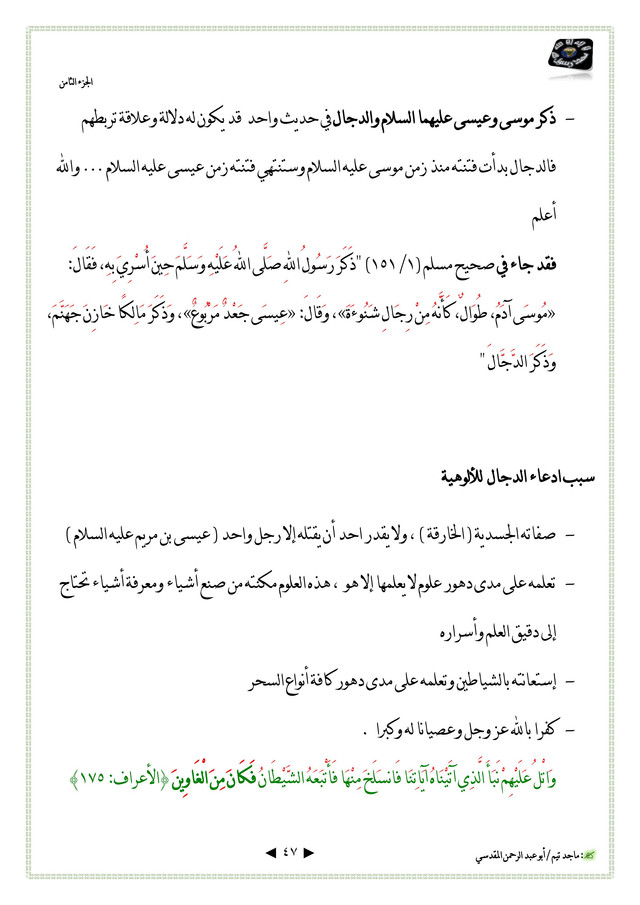 الجزء الثامن
- ذكر موسى وعيسى عليهما السلام والدجال في حديث واحد قد يكون له دلالة وعلاقة تربطهم
فالدجال بدأت فتنته منذ زمن موسى عليه السلام وستنتهي فتنته زمن عيسى عليه السلام ... والله
أعلم
فقد جاء في صحيح مسلم (١/ ١٥١) "ذَكَرَ رَسُولُ اللهِ صَلَّى اللهُ عَلَيْهِ وَسَلَّمَ حِينَ أُسْرِيَ بِهِ، فَقَالَ:
«مُوسَى آدَمُ، طُوَالٌ، كَأَنَّهُ مِنْ رِجَالِ شَنُوءَةَ»، وَقَالَ: «عِيسَى جَعْدٌ مَرْبُوعٌ»، وَذَكَرَ مَالِكًا خَازِنَ جَهَنَّمَ،
وَذَكَرَ الدَّجَّالَ "
سبب ادعاء الدجال للألوهية
- صفاته الجسدية ( الخارقة ) ، ولا يقدر احد أن يقتله إلا رجل واحد ( عيسى بن مريم عليه السلام )
- تعلمه على مدى دهور علوم لا يعلمها إلا هو ، هذه العلوم مكنته من صنع أشياء ومعرفة أشياء تحتاج
إلى دقيق العلم وأسراره
- إستعانته بالشياطين وتعلمه على مدى دهور كافة أنواع السحر
- كفرا بالله عز وجل وعصيانا له وكبرا .
وَاتْلُ عَلَيْهِمْ نَبَأَ الَّذِي آتَيْنَاهُ آيَاتِنَا فَانسَلَخَ مِنْهَا فَأَتْبَعَهُ الشَّيْطَانُ فَكَانَ مِنَ الْغَاوِينَ ﴿الأعراف: ١٧٥﴾
: ماجد تيم / أبو عبد الرحمن المقدسي
◄ ٤٧ ►